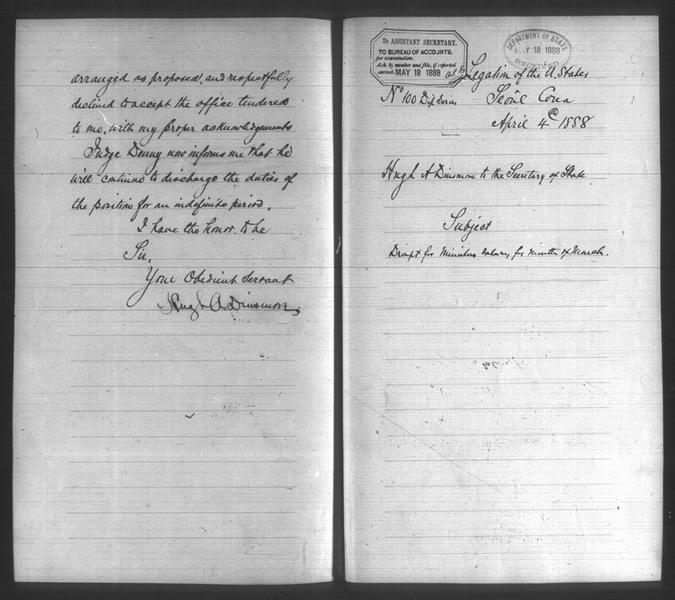 arranged as proposed, and respectfully
declined to accept the office tendered
to me, with my proper acknowledgements
Judge Denny now informs me that he
will continue to discharge the duties of
the position for an indefinite period.
I have the honor to be
Sir,
Your Obedient Servant
Hugh A. Dinsmore
2D ASSISTANT SECRETARY.
TO BUREAU OF ACCOUNTS,
for examination.
Ack. by number and file, if reported
correct. MAY 18 1888
DEPARTMENT OF STATE
MAY 18 1888
RECEIVED
Legation of the U. States
No 100 Dip Series
Seoul Corea
April 4th 1888
Hugh A Dinsmore to the Secretary of State
Subject
Draft for Ministers salary, for month of March.